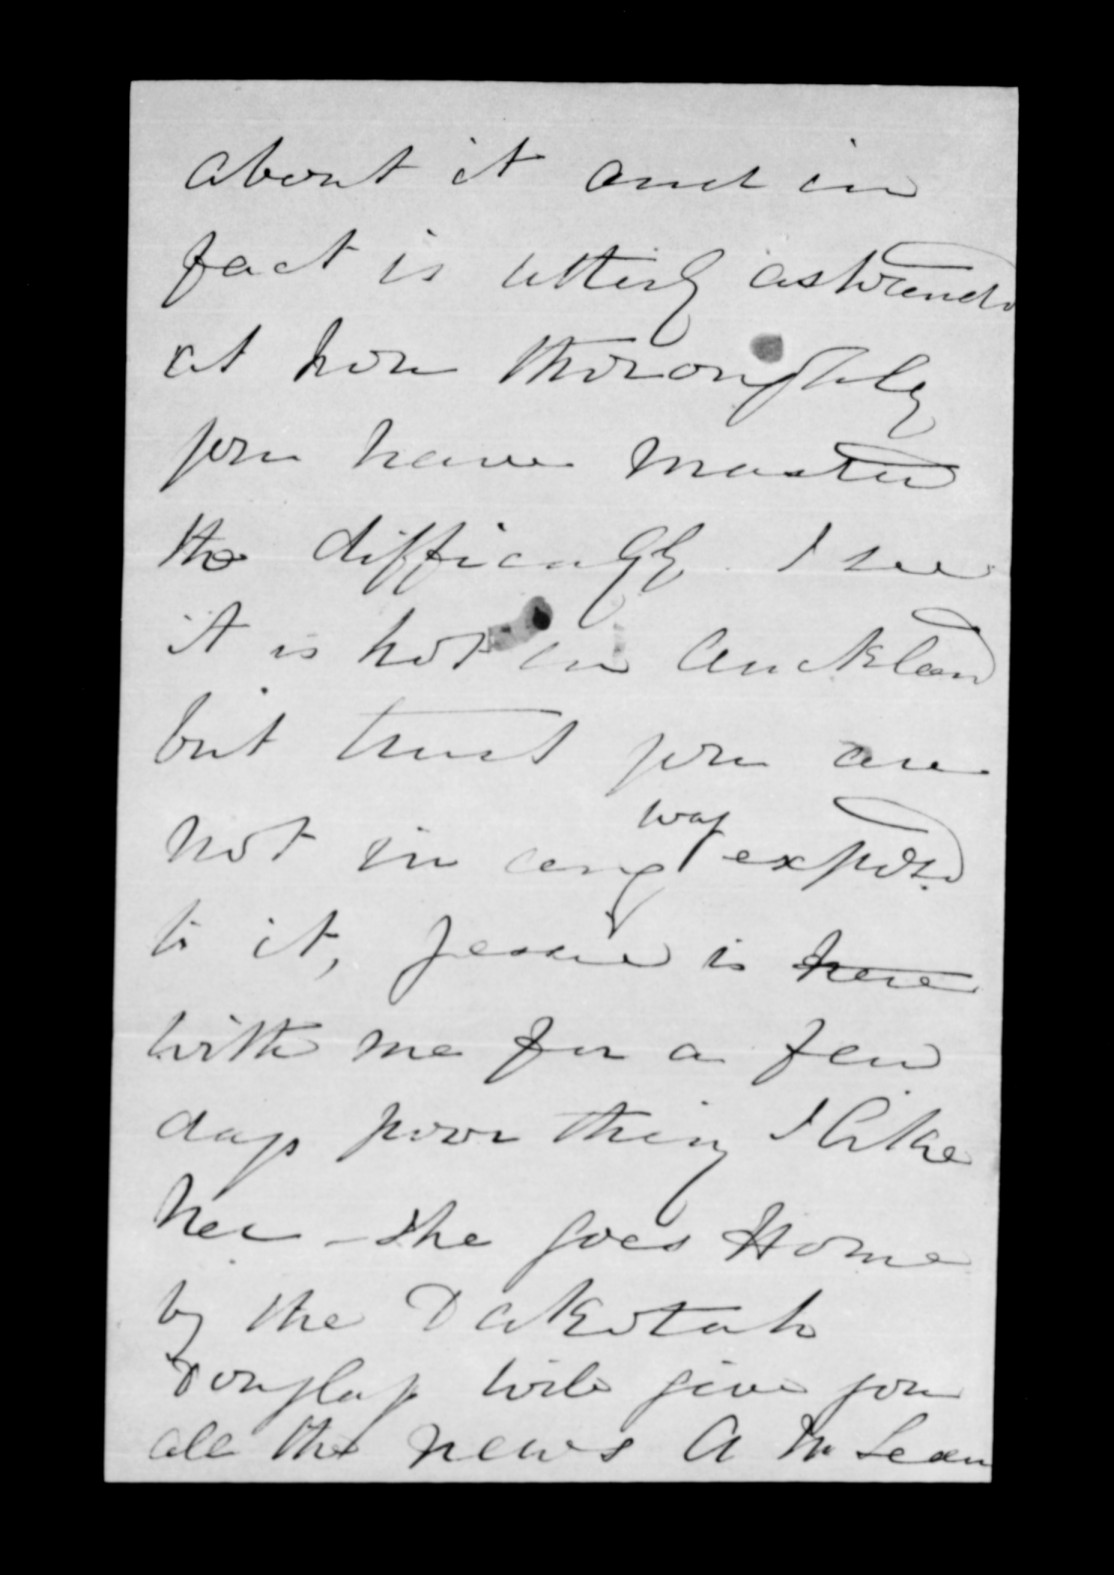 about it and in
fact is utterly astounded
at how thoroughly
you have mastered
the difficulty. I see
it is hot in Auckland
but trust you are
not in any way exposed
to it, Jessie is here
with me for a few
days poor thing I like
her - she goes Home
by the Dakotah
Douglas will give you
all the news A McLean